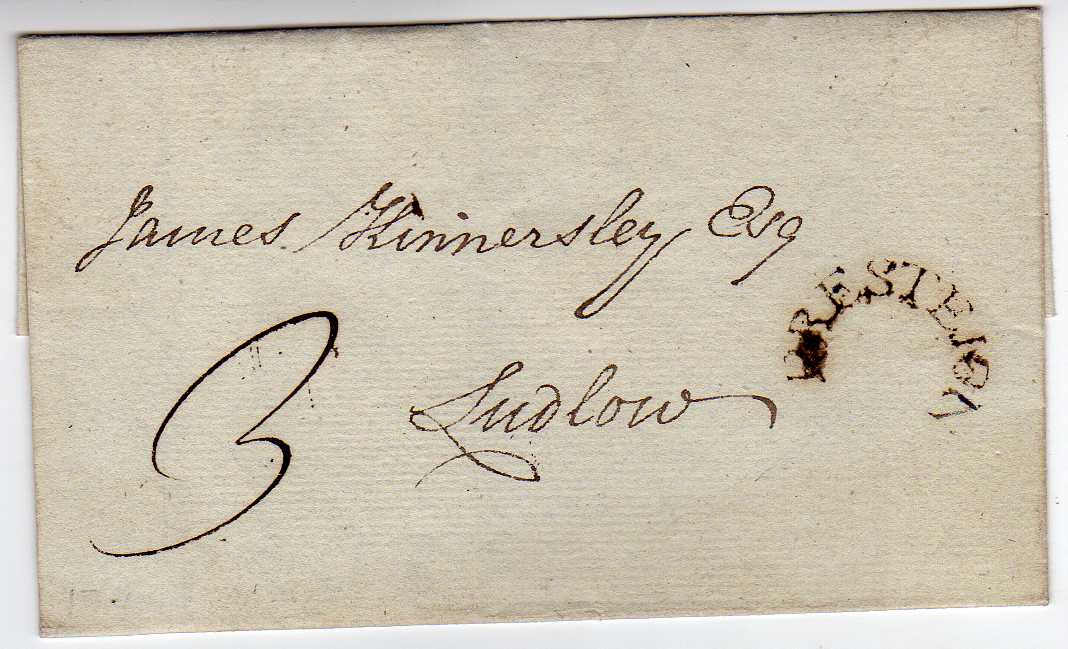 James Kinnersley Esq
PRESTEIGN
3
Ludlow